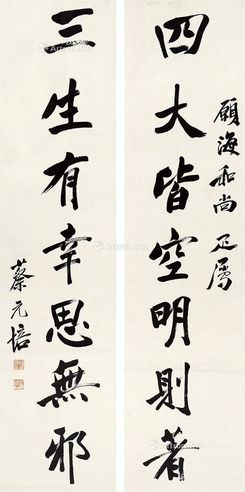 願海和尚正屬
四大皆空明則者
三生有幸思無邪
蔡元培